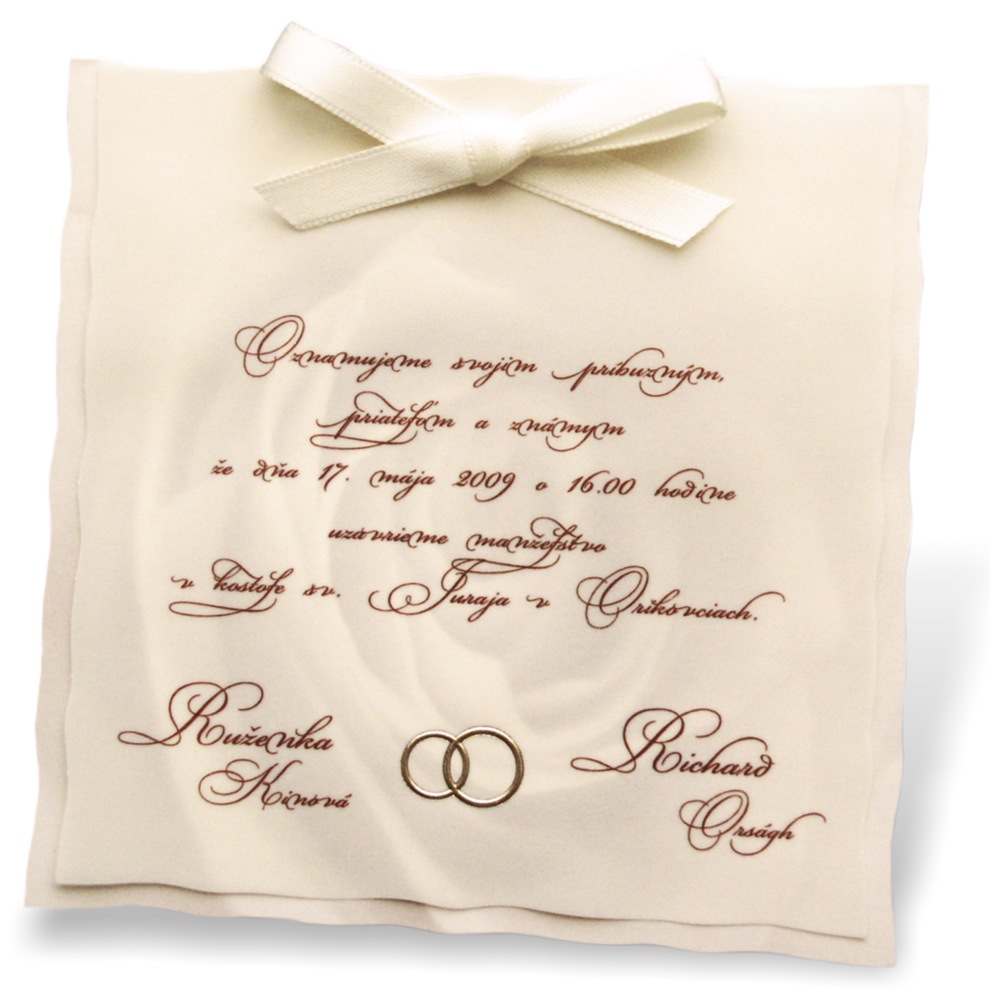 Oznamujeme svojim príbuzným,
priateľom a známym
že dňa 17. mája 2009 o 16.00 hodine
uzavrieme manželstvo
v kostole sv. Juraja v Oríkovciach.
Ruženka
Kinová
Richard
Orságh